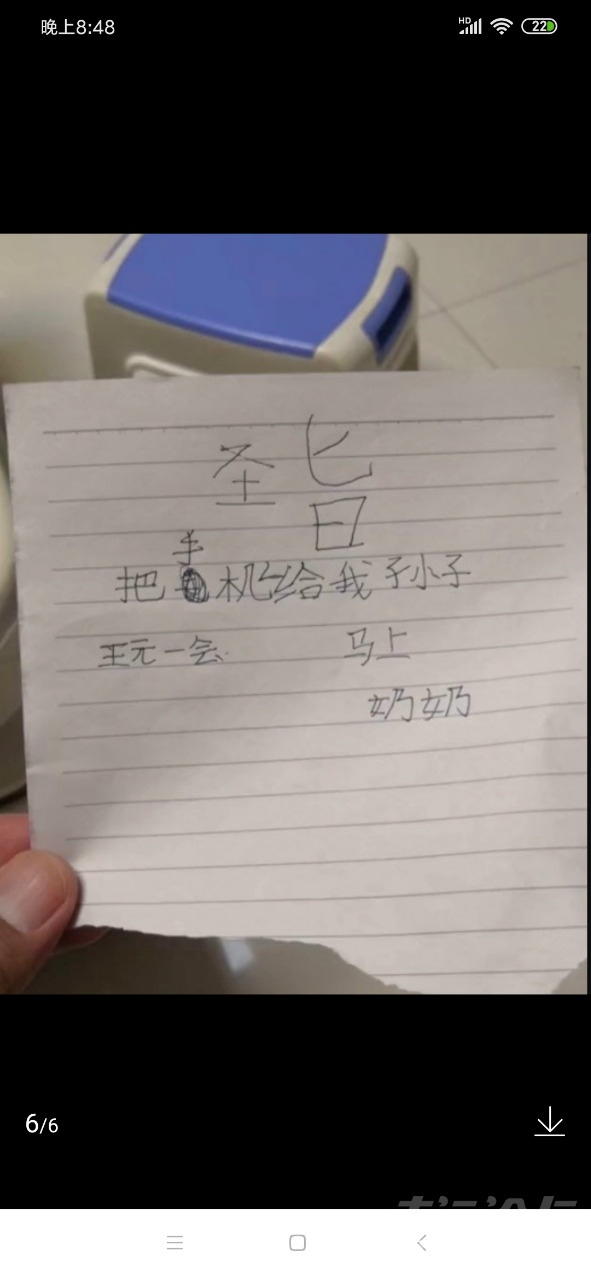 晚上8:48
HD
22
圣旨
手
把机给我孙子
王元一会
马上
奶奶
6/6